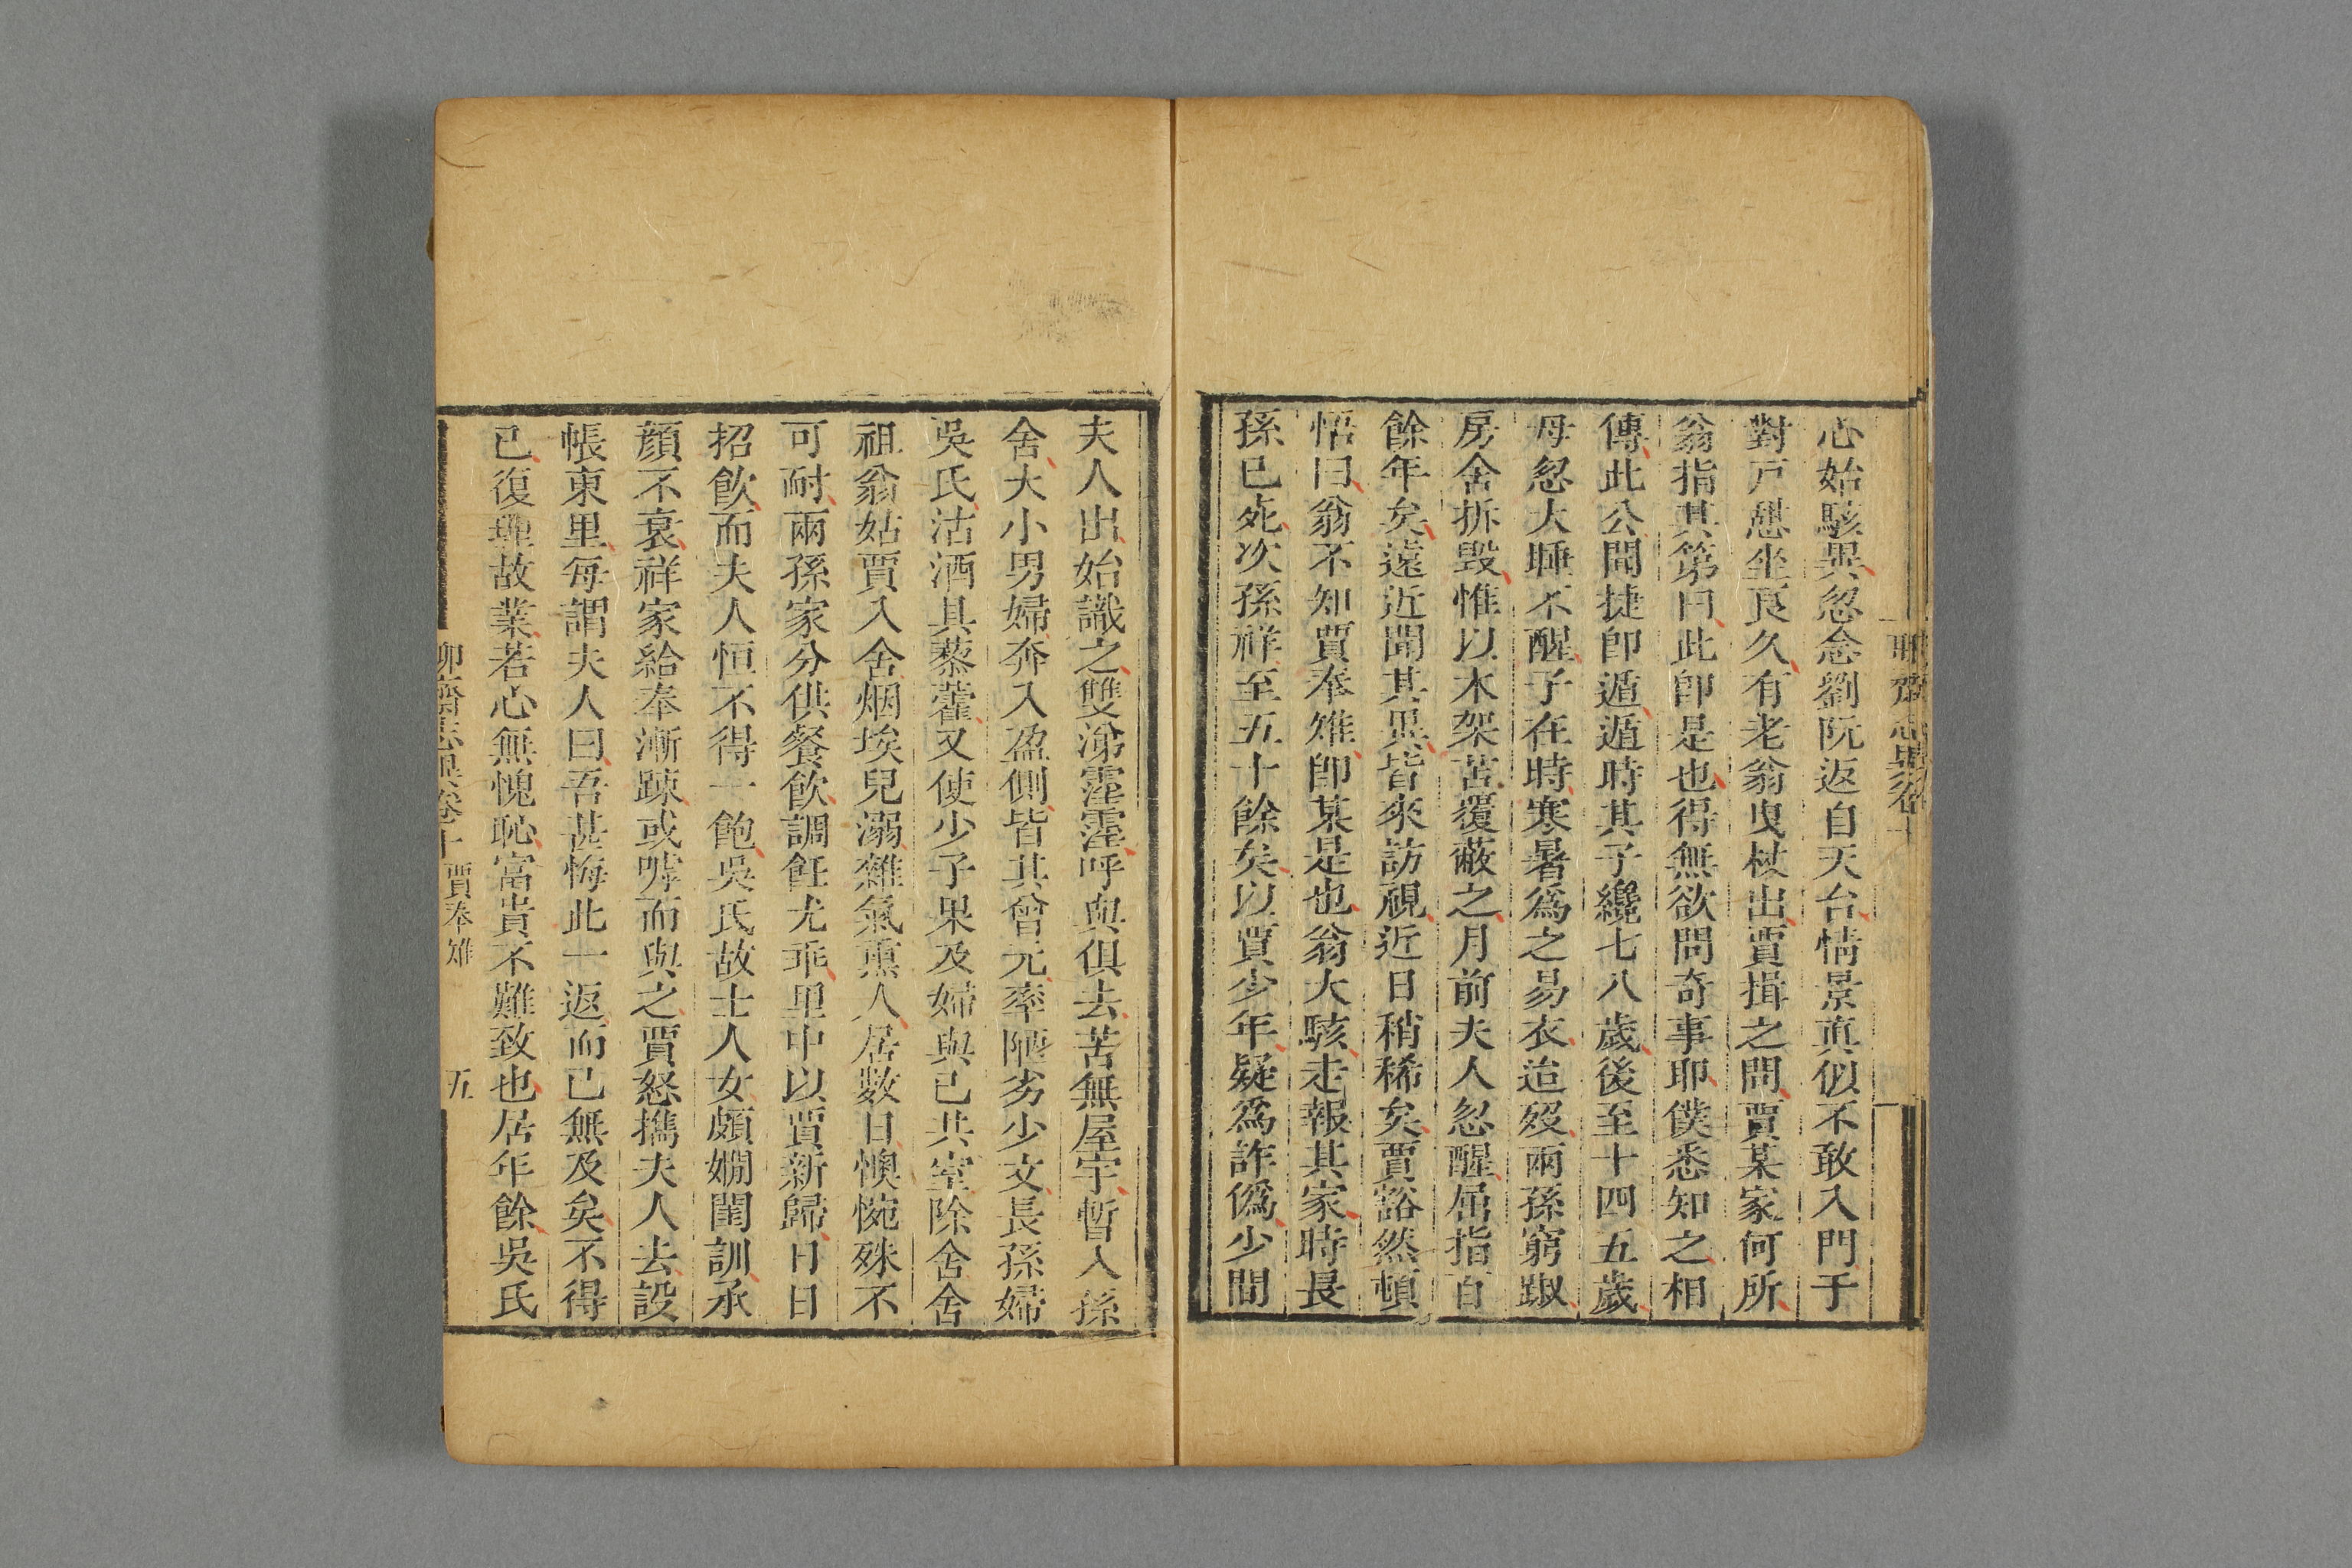 心始駭異忽念劉阮返自天台情景真似不敢入門于
對戸憇坐良久有老翁曳杖出賈揖之問賈某家何所
翁指其第曰此卽是也得無欲問奇事耶僕悉知之相
傳此公聞捷卽遁遁時其子纔七八歲後至十四五歲
母忽大睡不醒子在時寒暑爲之易衣迨歿兩孫窮踧
房舍拆毀惟以木架苫覆蔽之月前夫人忽醒屈指百
餘年矣遠近聞其異皆來訪視近日稍稀矣賈豁然頓
悟曰翁不知賈奉雉卽某是也翁大駭走報其家時長
孫已死次孫祥至五十餘矣以賈少年疑爲詐僞少間
夫人出始識之雙涕霪霪呼與俱去苦無屋宇暫入孫
舍大小男婦奔入盈側皆其曾元率陋劣少文長孫婦
吳氏沽酒具藜藿又使少子果及婦與己共室除舍舍
祖翁姑賈入舍烟埃兒溺雜氣熏人居數日懊惋殊不
可耐兩孫家分供餐飮調飪尤乖里中以賈新歸日日
招飮而夫人恒不得一飽吳氏故士人女頗嫺閨訓承
顏不衰祥家給奉漸踈或嘑而與之賈怒擕夫人去設
帳東里每謂夫人曰吾甚悔此一返而已無及矣不得
已復理故業若心無愧恥富貴不難致也居年餘吳氏
聊齋志異卷十 賈奉雉 五